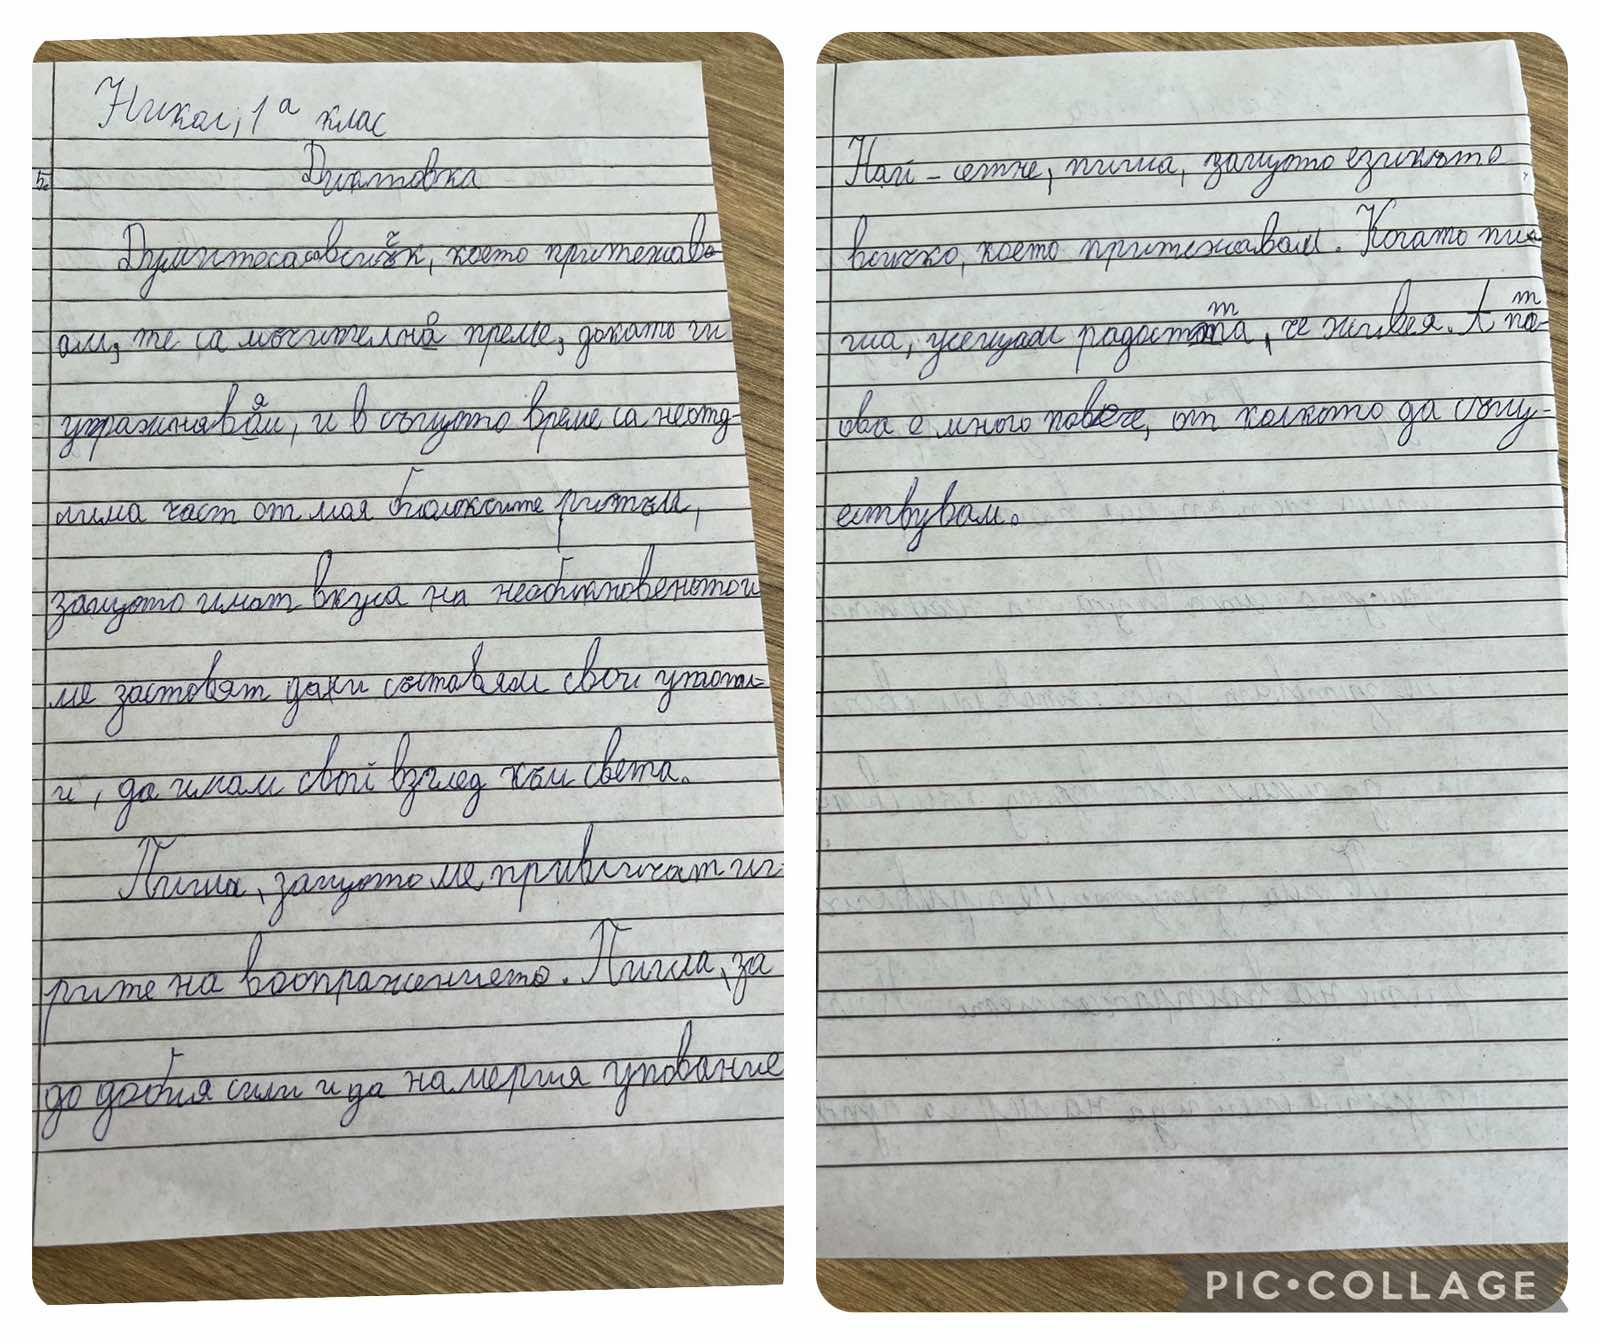 Никол, 1а клас
Диктовка
Думитесасвсичк, което притежав-
ам, те са мъчителна преме, докато ги
упражнявям, и в същото време са неотд-
лима част от мая биолоксите ритъм,
защото имат вкуса на необикновенотои
ме заставят дами съставям свои утопи-
и, да имам свой взглед към света.
Пиша, защото ме привличат иг-
рите на воображението. Пиша, за
до добия сили и да намерия упование
Най-сетне, пиша, защото езикъто
всичко, което притежавам. Когато пи-
ша, усещам радостта, че живея. А т
ова е много повече, от колкото да същу-
ествувам.
PIC•COLLAGE